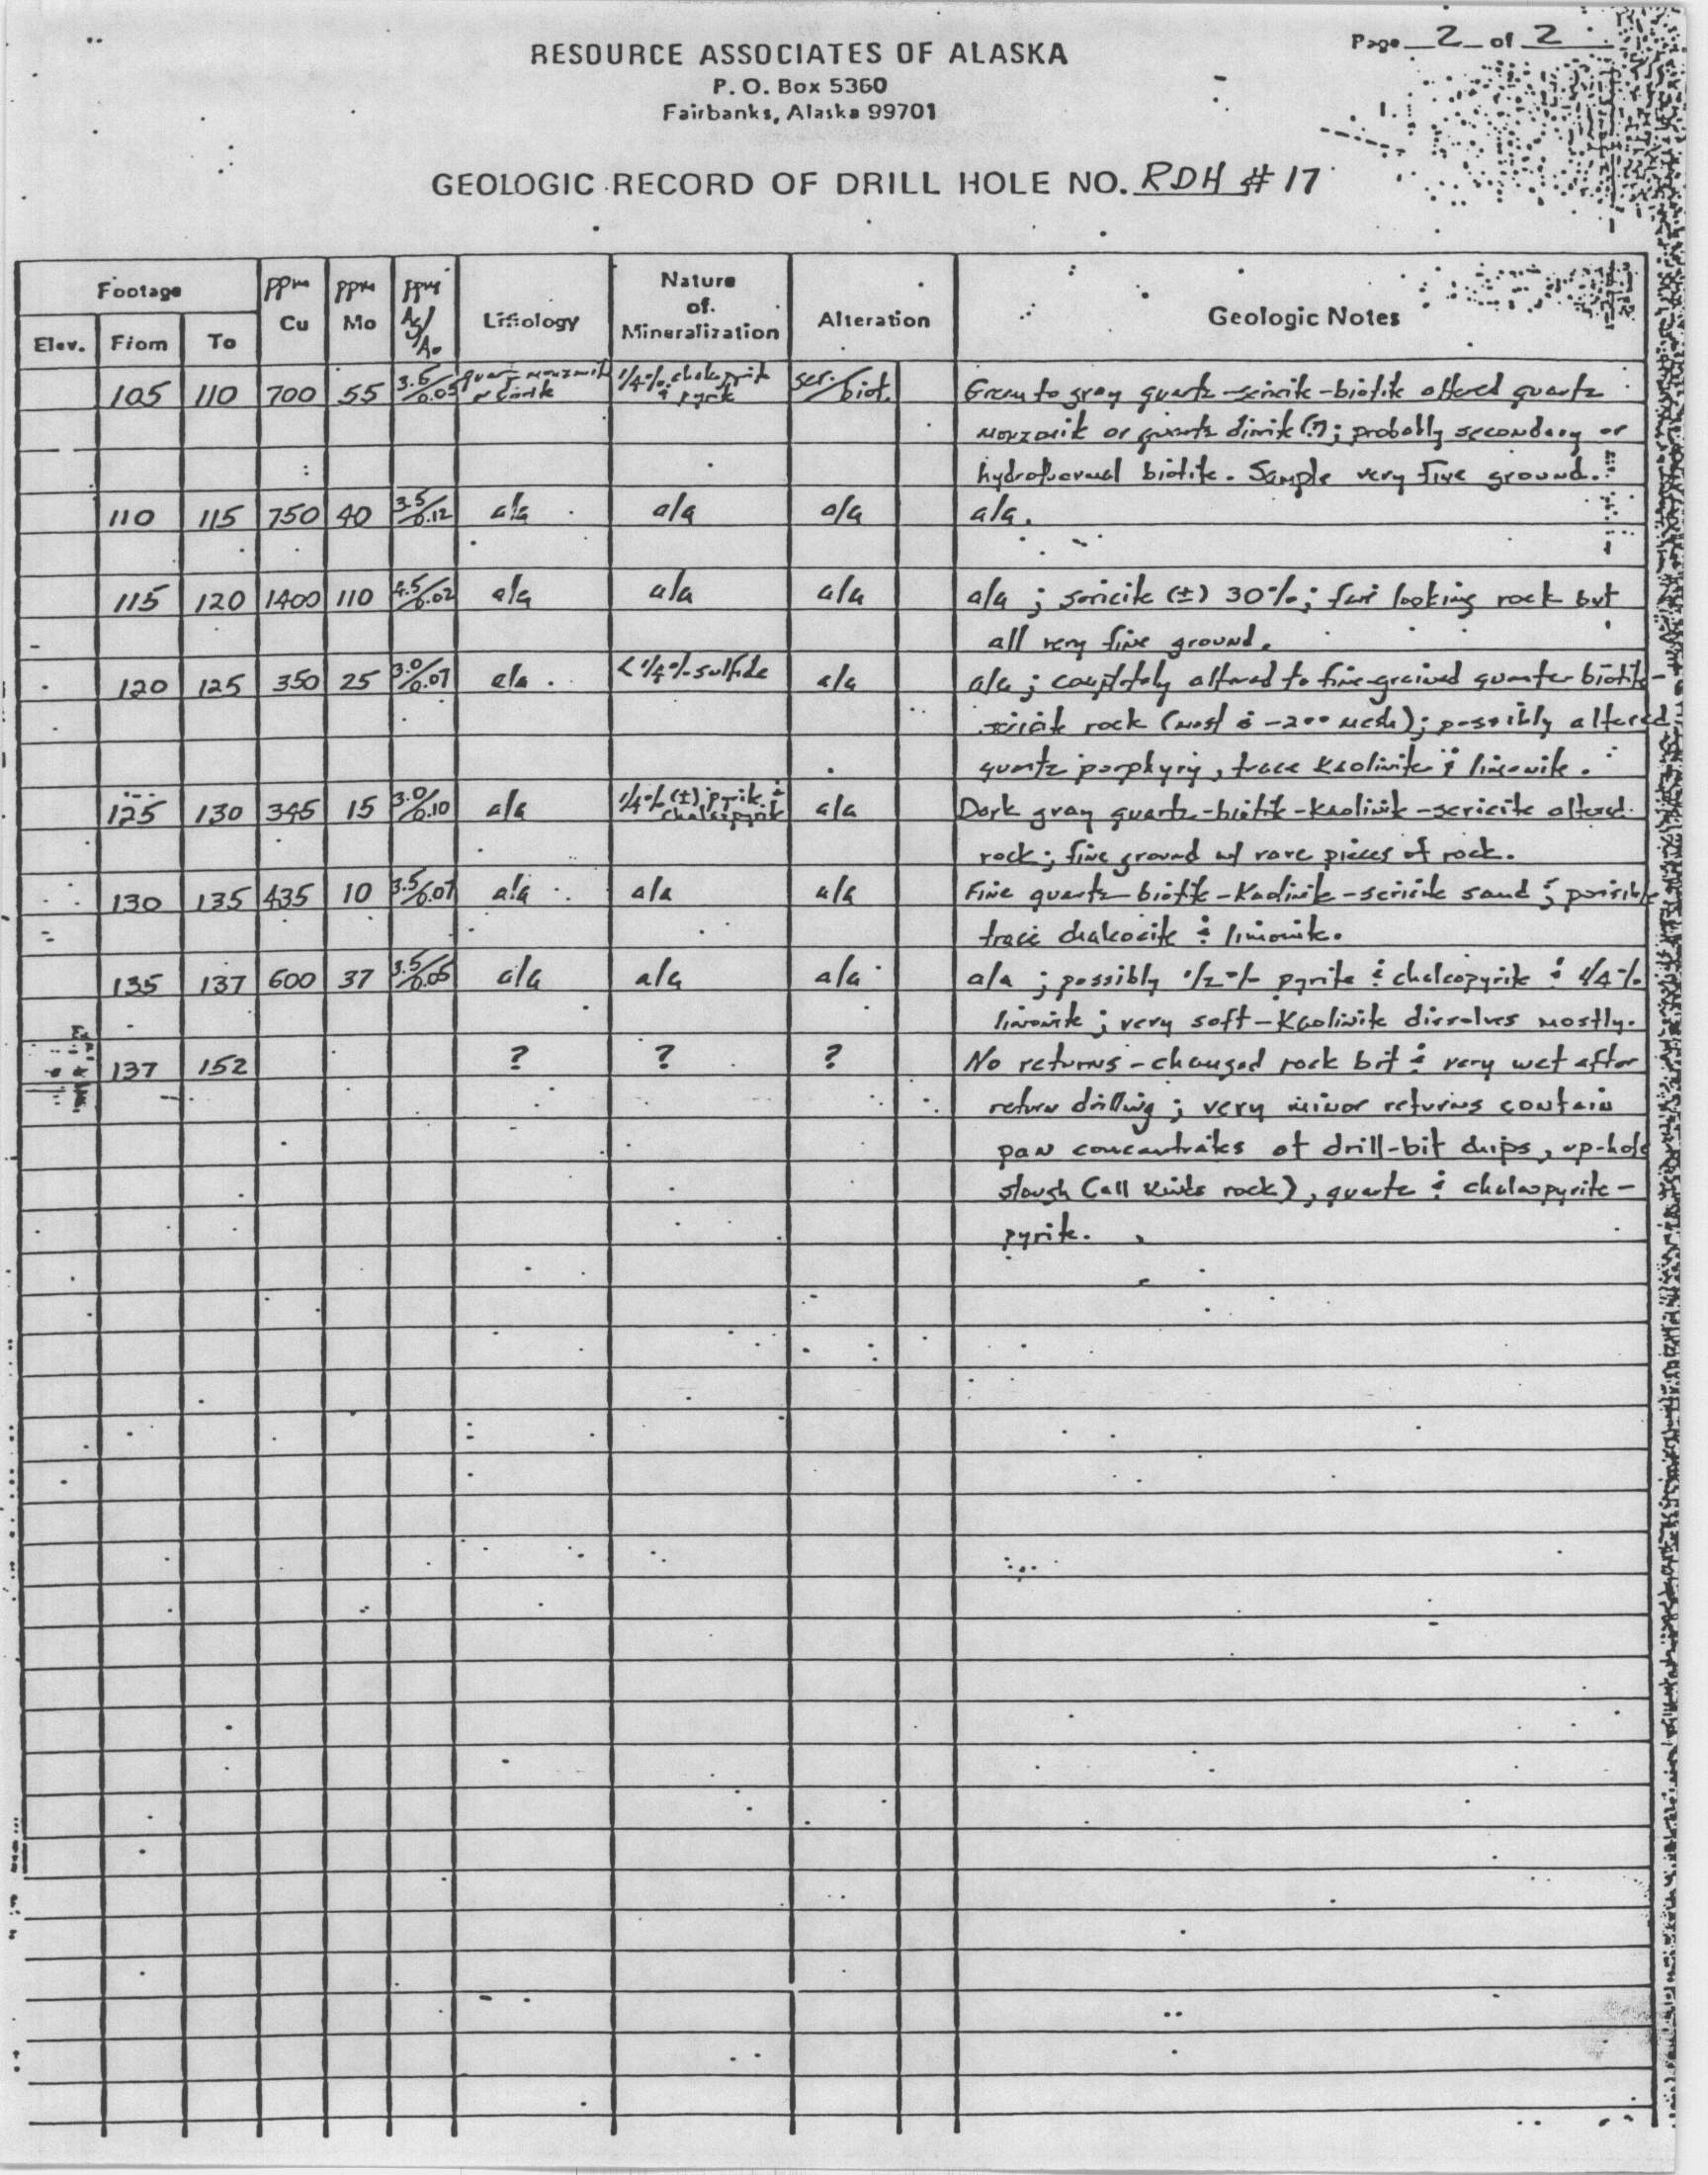 Page 2 of 2
RESOURCE ASSOCIATES OF ALASKA
P. O. Box 5360
Fairbanks, Alaska 99701
GEOLOGIC RECORD OF DRILL HOLE NO. RDH # 17
Footage
Elev. From To
ppm Cu
ppm Mo
ppm Ag/Au
Lithology
Nature of Mineralization
Alteration
Geologic Notes
105 110 700 55 3.5/0.05 quartz monzonite or diorite 1/4% chalcopyrite & pyrite ser./biot. Green to gray quartz-sericite-biotite altered quartz
monzonite or quartz diorite (?); probably secondary or
hydrothermal biotite. Sample very fine ground.
110 115 750 40 3.5/0.12 a/a a/a a/a a/a.
115 120 1400 110 4.5/0.02 a/a a/a a/a a/a; sericite (±) 30%; fair looking rock but
all very fine ground.
120 125 350 25 3.0/0.07 a/a <1/4% sulfide a/a a/a; completely altered to fine-grained quartz-biotite-
sericite rock (most is -200 mesh); possibly altered
quartz porphyry, trace kaolinite & limonite.
125 130 345 15 3.0/0.10 a/a 1/4% (±) pyrite & chalcopyrite a/a Dark gray quartz-biotite-kaolinite-sericite altered
rock; fine ground w/ rare pieces of rock.
130 135 435 10 3.5/0.07 a/a a/a a/a Fine quartz-biotite-kaolinite-sericite sand; possible
trace chalcocite & limonite.
135 137 600 37 3.5/0.05 a/a a/a a/a a/a; possibly 1/2% pyrite & chalcopyrite & 1/4%
limonite; very soft-kaolinite dissolves mostly.
137 152 ? ? ? No returns - changed rock bit & very wet after
return drilling; very minor returns contain
pan concentrates of drill-bit chips, up-hole
slough (all kinds rock), quartz & chalcopyrite-
pyrite.